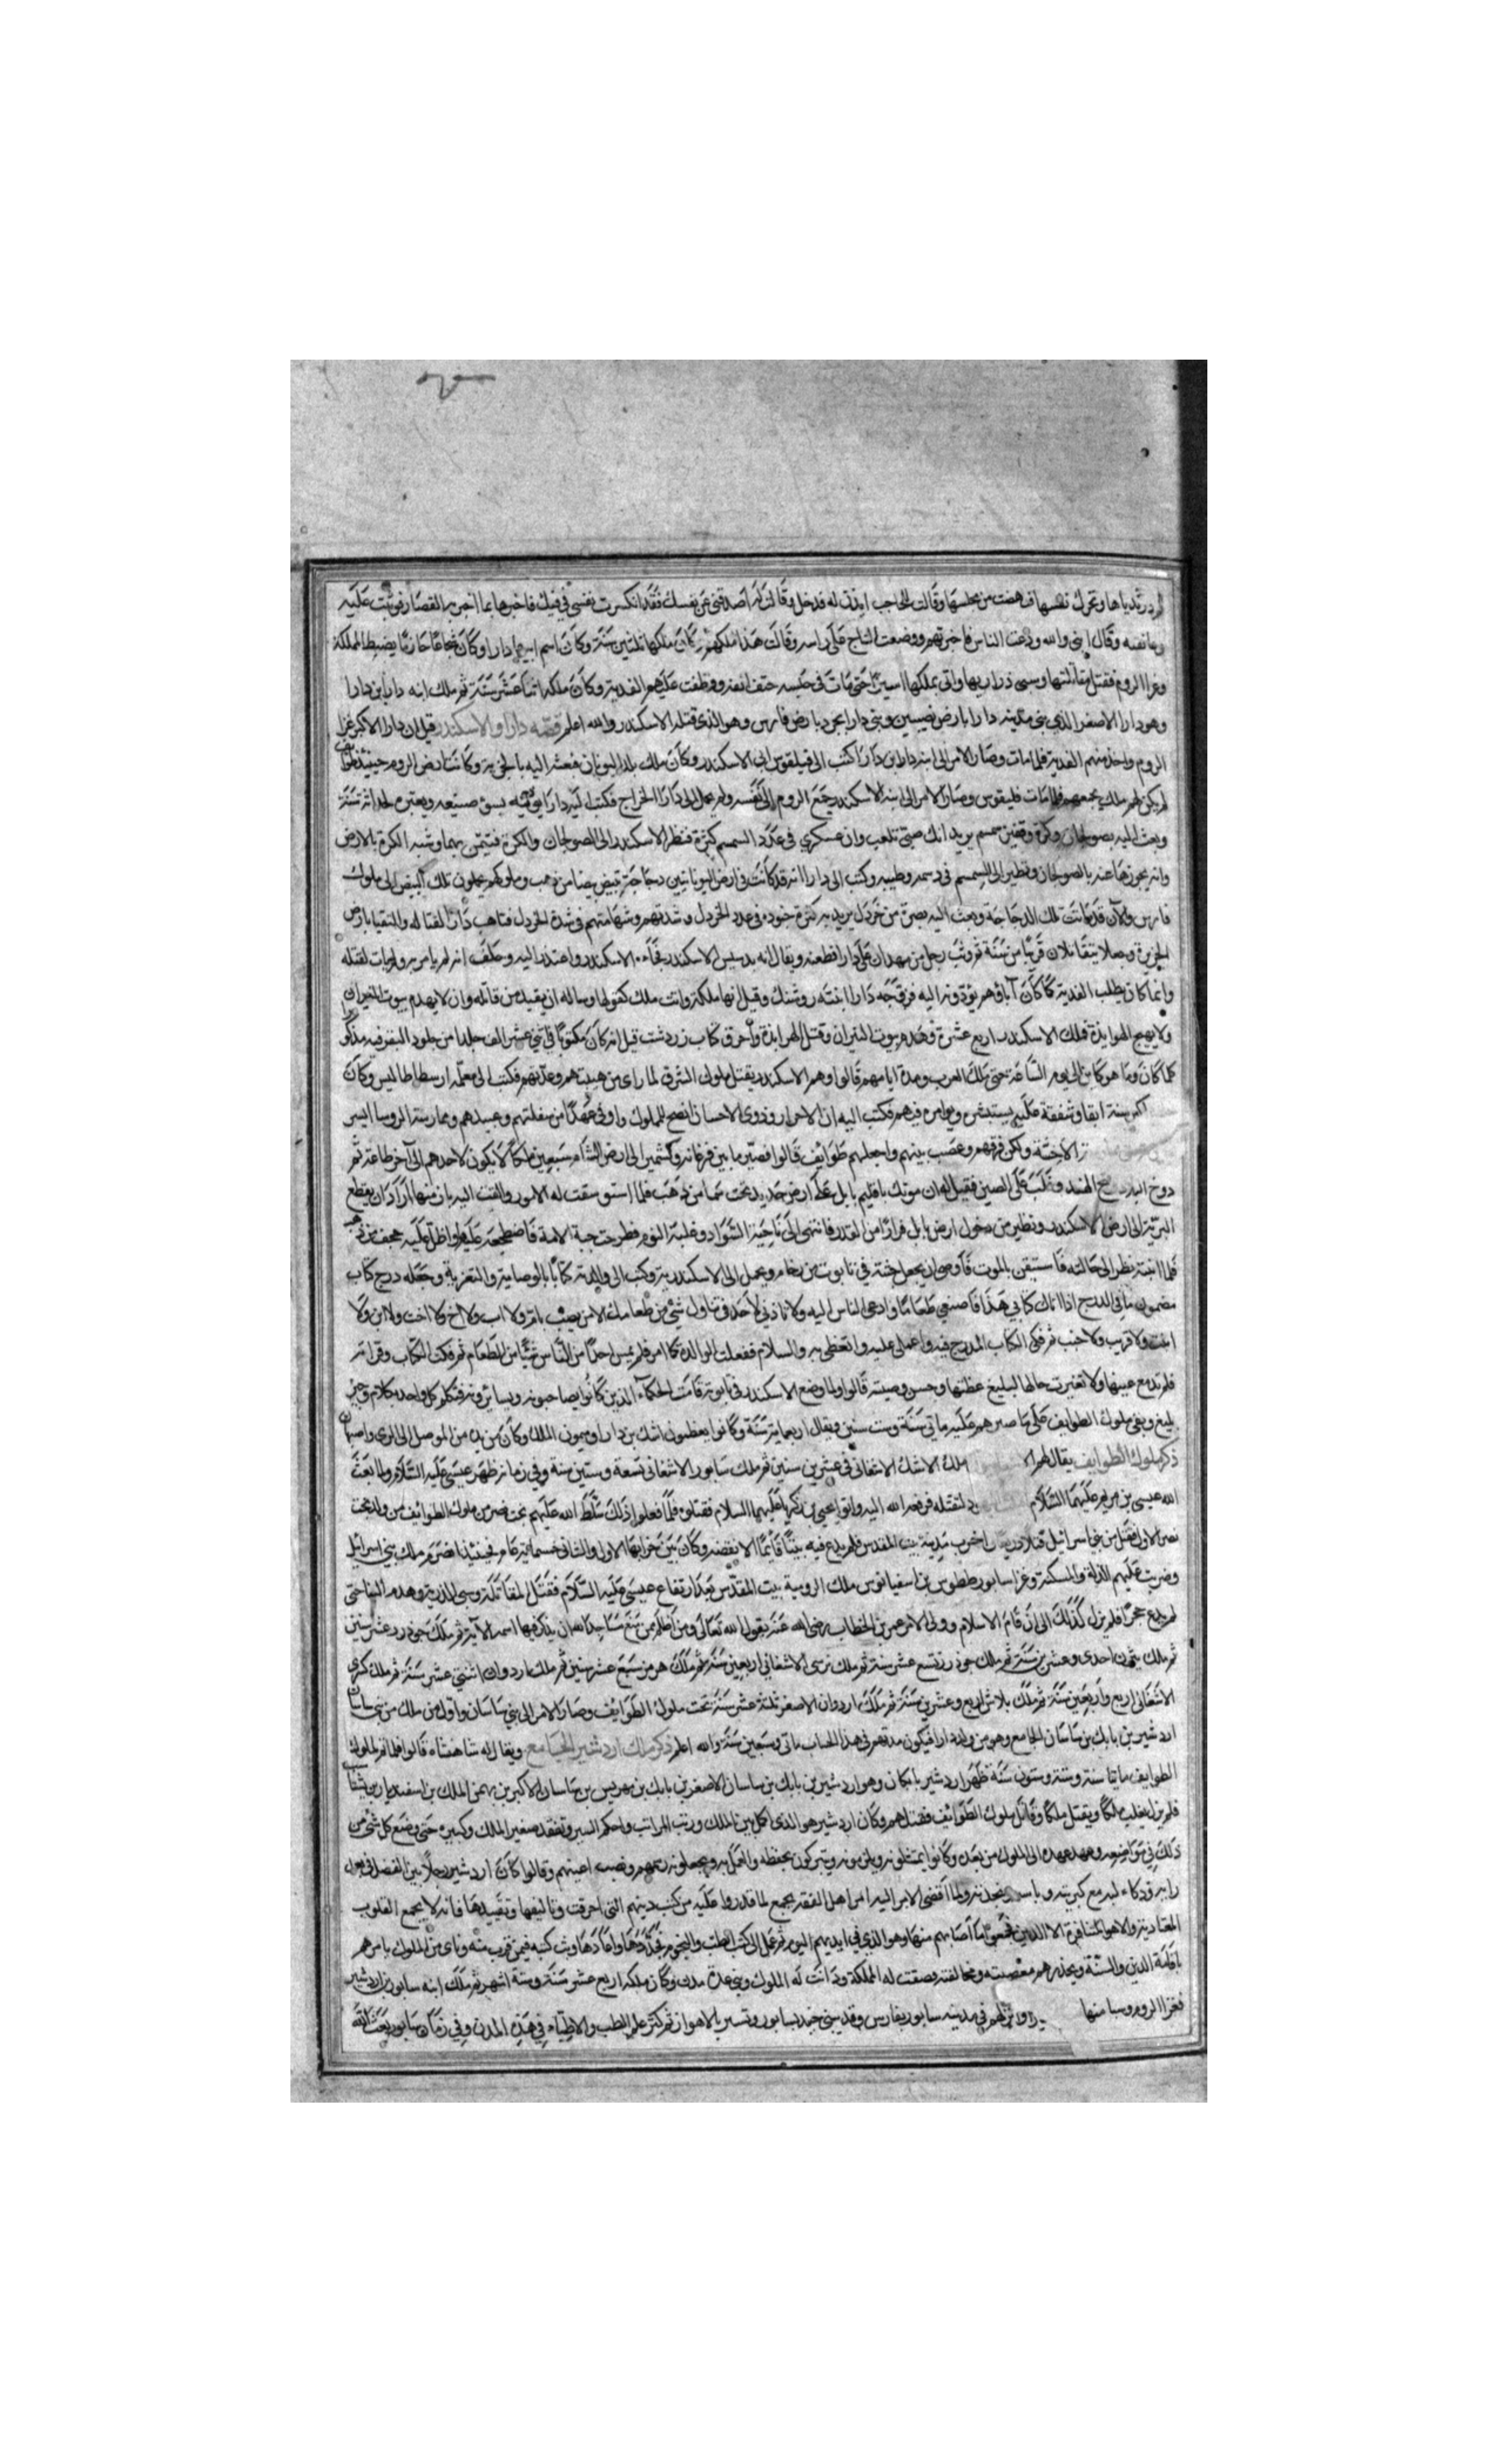 در ثدياها وتحرك نفسها فنهضت من مجلسها وقالت للحاجب ايذن له فدخل وقالت له اصدقني عن نفسك فقد انكسرت نفسي في فيك فاخبرها بما اخبر به القصار فوثبت عليه
وعانقته وقال ابني والله ودعت الناس فاخبرتهم ووضعت التاج على راسه وقالت هذا ملككم كان ملكها ثلثين سنة وكان اسم ابنها دارا وكان شجاعا حازما يضبط المملكة
وغزا الروم فقتل مقاتلتها وسبى ذراريها واتى بملكها اسيرا حتى مات في حبسه حتف انفه ووظفت عليهم الفدية وكان ملكه اثنا عشر سنة ثم ملك ابنه دارا بن دارا
وهو دارا الاصغر الذي بنى مدينة دارا بارض نصيبين وبنى دارابجرد بارض فارس وهو الذي قتله الاسكندر والله اعلم قصة دارا والاسكندر قيل ان دارا الاكبر غزا
الروم واخذ منهم الفدية فلما مات وصار الامر الى ابنه دارا بن دارا كتب الى فيلقوس ابي الاسكندر وكان ملك بلد اليونان فبعث اليه بالخزية وكانت ارض الروم حينئذ طوائف
لم يكن لهم ملك يجمعهم فلما مات فليقوس وصار الامر الى ابنه الاسكندر جمع الروم الى نفسه ولم يحمل الى دارا الخراج فكتب اليه دارا يوبخه بسوء صنيعه ويعتبره لحداثة سنه
وبعث اليه بصولجان وكرة وقفيز سمسم يريد انك صبي تلعب وان عسكري في عدد السمسم كثرة فنظر الاسكندر الى الصولجان والكرة فتيمن بهما وشبه الكرة بالارض
وانه يحوزها عنه بالصولجان ونظير الى السمسم في دسمه وطيبه وكتب الى دارا انه قد كانت في ارض اليونانيين دجاجة تبيض بيضا من ذهب وملوكهم يحملون تلك البيض الى ملوك
فارس والآن قد ماتت تلك الدجاجة وبعث اليه بصرة من خردل يريد به كثرة جنوده في عدد الخردل وشدتهم وشهامتهم في شدة الخردل فتاهب دارا للقتاله والتقيا بارض
الجزيرة وجعلا يتقاتلان قريبا من سنة فوثب رجل من همدان على دارا فطعنه ويقال انه بدسيس الاسكندر فجاءه الاسكندر واعتذر اليه وحلف انه لم يامر به ولم يات لقتله
وانما كان يطلب الفدية كما كان آباؤهم يؤدونه اليه فزوجه دارا ابنته روشنك وقيل انها ملكة وانت ملك كفو لها وساله ان يقيد من قاتله وان لا يهدم بيوت النيران
ولا يهيج الهوابذة فملك الاسكندر اربع عشرة وهدم بيوت النيران وقتل الهرابذة واحرق كتاب زردشت قيل انه كان مكتوبا في اثني عشر الف جلدا من جلود البقر فيه مذكور
كلما كان وما هو كاين الى يوم الساعة حتى ملك العرب ومدة ايامهم قالوا وهم الاسكندر بقتل ملوك الشرق لما راى من هيبتهم وعدتهم فكتب الى معلمه ارسطاطاليس وكان
اكبر سنه ابقا وشفقة عليه يستبشره ويوامره فيهم فكتب اليه ان الاحرار وذوى الاحسان انصح للملوك واوفى عهدا من سفلتهم وعبيدهم وممارسة الروسا ايسر
الاخسة ولكن فرقهم وعصب بينهم واجعلهم طوائف قالوا فصير ما بين فرغانه وكشمير الى ارض الشام سبعين ملكا لا يكون لاحدهم الى آخر طاعة ثم
دوخ الهند وغلب على الصين فقيل له ان موتك باقليم بابل على ارض حديد تحت سما من ذهب فلما استوسقت له الامور والقت اليه بازمتها اراد ان يقطع
البرية الى ارض الاسكندر وتطير من دخول ارض بابل فرارا من القدر فانتهى الى ناحية السواد وغلبه النوم فطرحت جبة الامة فاضطجعه عليها واظل عليه بحجف من ذهب
فلما انتبه نظر الى حالته فاستيقن بالموت فاوصى ان يجعل جثته في تابوت من رخام ويحمل الى الاسكندرية وكتب الى والدته كتابا بالوصاية والتعزية وجعله درج كتاب
مضمون ما في الدرج اذا اتاك كتابي هذا فاصنعي طعاما وادعى الناس اليه ولا تاذني لاحد في تناول شئ من طعامك الا من يصب بام ولا اب ولا اخ ولا اخت ولا ابن ولا
ابنت ولا قريب ولا حبيب ثم فكي الكتاب المدرج فيه واعملي عليه واتعظى به والسلام ففعلت الوالدة كما امر فلم يمس احدا من الناس شيئا من الطعام ثم فكت الكتاب وقراته
فلم تدمع عينها ولا تغيرت حالها لبليغ عظتها وحسن وصيته قالوا ولما وضع الاسكندر في تابوته قامت الحكماء الذين كانوا يصاحبونه ويسايرونه فتكلم كل واحد بكلام وجيز
بليغ وبقي ملوك الطوايف على ما صبرهم عليه مائتي سنة وست سنين ويقال اربعماية سنة وكانوا يعظمون اشك بن دارا ويسمون الملك وكان من بيه من الموصل الى الرى واصبهان
ذكر ملوك الطوايف يقال لهم الا ملك الاشك الاشغاني في عشرين سنين ثم ملك سابور الاشغاني تسعة وستين سنة وفي زمانه ظهر عيسى عليه السلام ولما بعث
الله عيسى بن مريم عليهما السلام لتقتله فرفعه الله اليه واتوا يحيى بن زكريا عليهما السلام فقتلوه فلما فعلوا ذلك سلط الله عليهم بخت نصر من ملوك الطوائف من ولد بخت
نصر الاول فقتل من بني اسرائيل قتلا واخرب مدينة بيت المقدس فلم يدع فيه بيتا قائما الا نقضه وكان بين خرابها الاول والثاني خمسماية عام فحينئذ انصرم ملك بني اسرائيل
وضربت عليهم الذلة والمسكنة وغزا سابور ططوس بن اسفيانوس ملك الرومية بيت المقدس بعد ارتفاع عيسى عليه السلام فقتل المقاتلة وسبى الذرية وهدم البنا حتى
لم يدع حجرا فلم يزل كذلك الى ان قام الاسلام وولى الامر عمر بن الخطاب رضي الله عنه يقول الله تعالى ومن اظلم ممن منع مساجد الله ان يذكر فيها اسمه الآية ثم ملك جوذرد عشر سنين
ثم ملك احدى وعشرين سنة ثم ملك جوذرز تسع عشر سنة ثم ملك نرسى الاشغاني اربعين سنة ثم ملك هرمز سبع عشر سنين ثم ملك اردوان اثنتي عشر سنة ثم ملك كسرى
الاشغاني اربع واربعين سنة ثم ملك بلاش اربع وعشرين سنة ثم ملك اردوان الاصغر ثلثة عشر سنة تحت ملوك الطوايف وصار الامر الى بني ساسان واول من ملك من بني ساسان
اردشير بن بابك بن ساسان الجامع وهو من ولد دارا فيكون مدتهم في هذا الحساب مائي وسبعين سنة والله اعلم ذكر ملك اردشير الجامع ويقال له شاهنشاه قالوا فلما تم لملوك
الطوايف مايتا سنة وستة وستون سنة ظهر اردشير بابكان وهو اردشير بن بابك بن ساسان الاصغر بن بابك بن مهريس بن ساسان الاكبر بن بهمن الملك بن اسفنديار بن بشتاسب
فلم يزل يغلب ملكا ويقتل ملكا وقاتل ملوك الطوائف فقتلهم وكان اردشير هو الذي اكمل بين الملك ورتب المراتب واحكم السير وتفقد صغير الملك وكبيره حتى وضع كل شئ من
ذلك في موضعه وعهد عهده الى الملوك من بعده وكانوا يمتثلونه ويلزمونه ويتبركون بحفظه والعمل به ويجعلونه درسهم ونصب اعينهم وقالوا كان اردشير رجلا بين الفضل في
رايه وذكاء لبه مع كبريته وباسه ونجدته ولما افضى الامر اليه امر اهل الفقه بجمع لما قدروا عليه من كتب دينهم التى احرقت وتاليفها وتقييدها فانه لا يجمع القلوب
المتعادية والاهوا المتنافرة الا الدين فجمعوا ما اصابهم منها وهو الذي في ايديهم اليوم ثم عمل الى كتب الطب والنجوم فجددها واعادها وبث كتبه فيمن قرب منه وناى من الملوك يامرهم
باقامة الدين والسنة ويحذرهم معصيته ومخالفته فصفت له المملكة ودانت له الملوك وبنى عدة مدن وكان ملكه اربع عشر سنة وستة اشهر ثم ملك ابنه سابور بن اردشير
فغزا الروم وسبا منها وانزلهم في مدينة سابور بفارس وقد بنى جنديسابور وتستر بالاهواز ثم كثر علم الطب والاطباء في هذه المدن وفي زمان سابور بعث الله